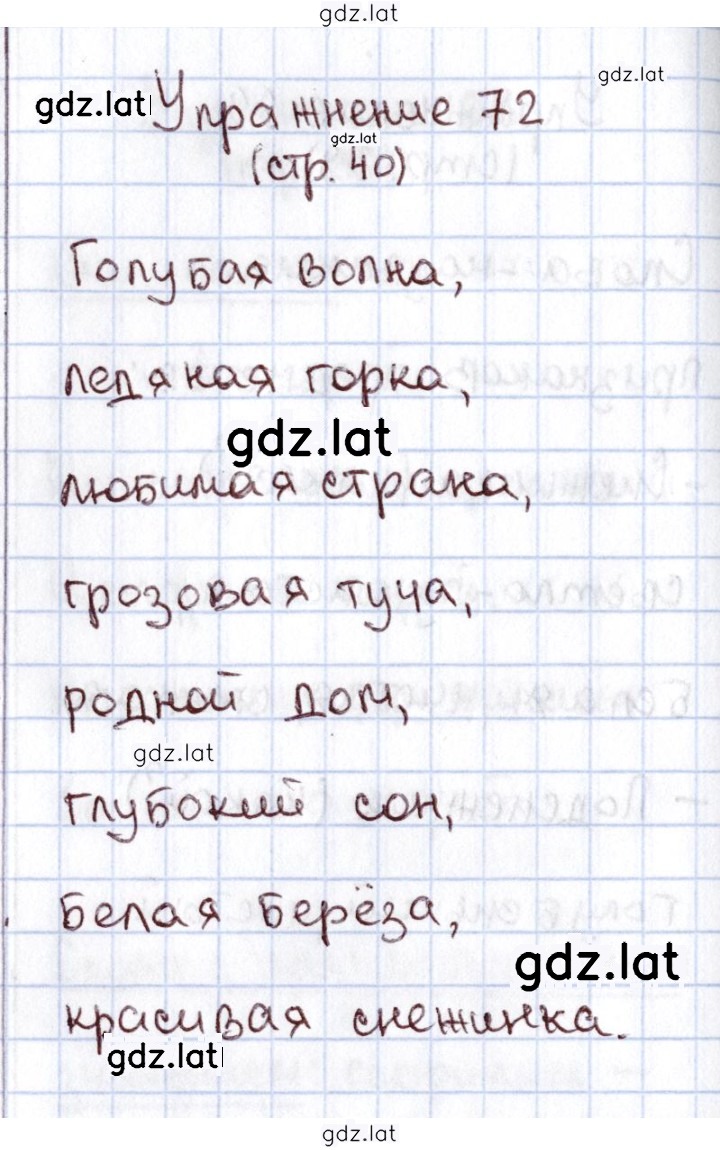 gdz.lat
gdz.lat
gdz.lat
Упражнение 72
gdz.lat
(стр. 40)
Голубая волна,
ледяная горка,
gdz.lat
любимая страна,
грозовая туча,
родной дом,
gdz.lat
глубокий сон,
белая берёза,
gdz.lat
красивая снежинка.
gdz.lat
gdz.lat